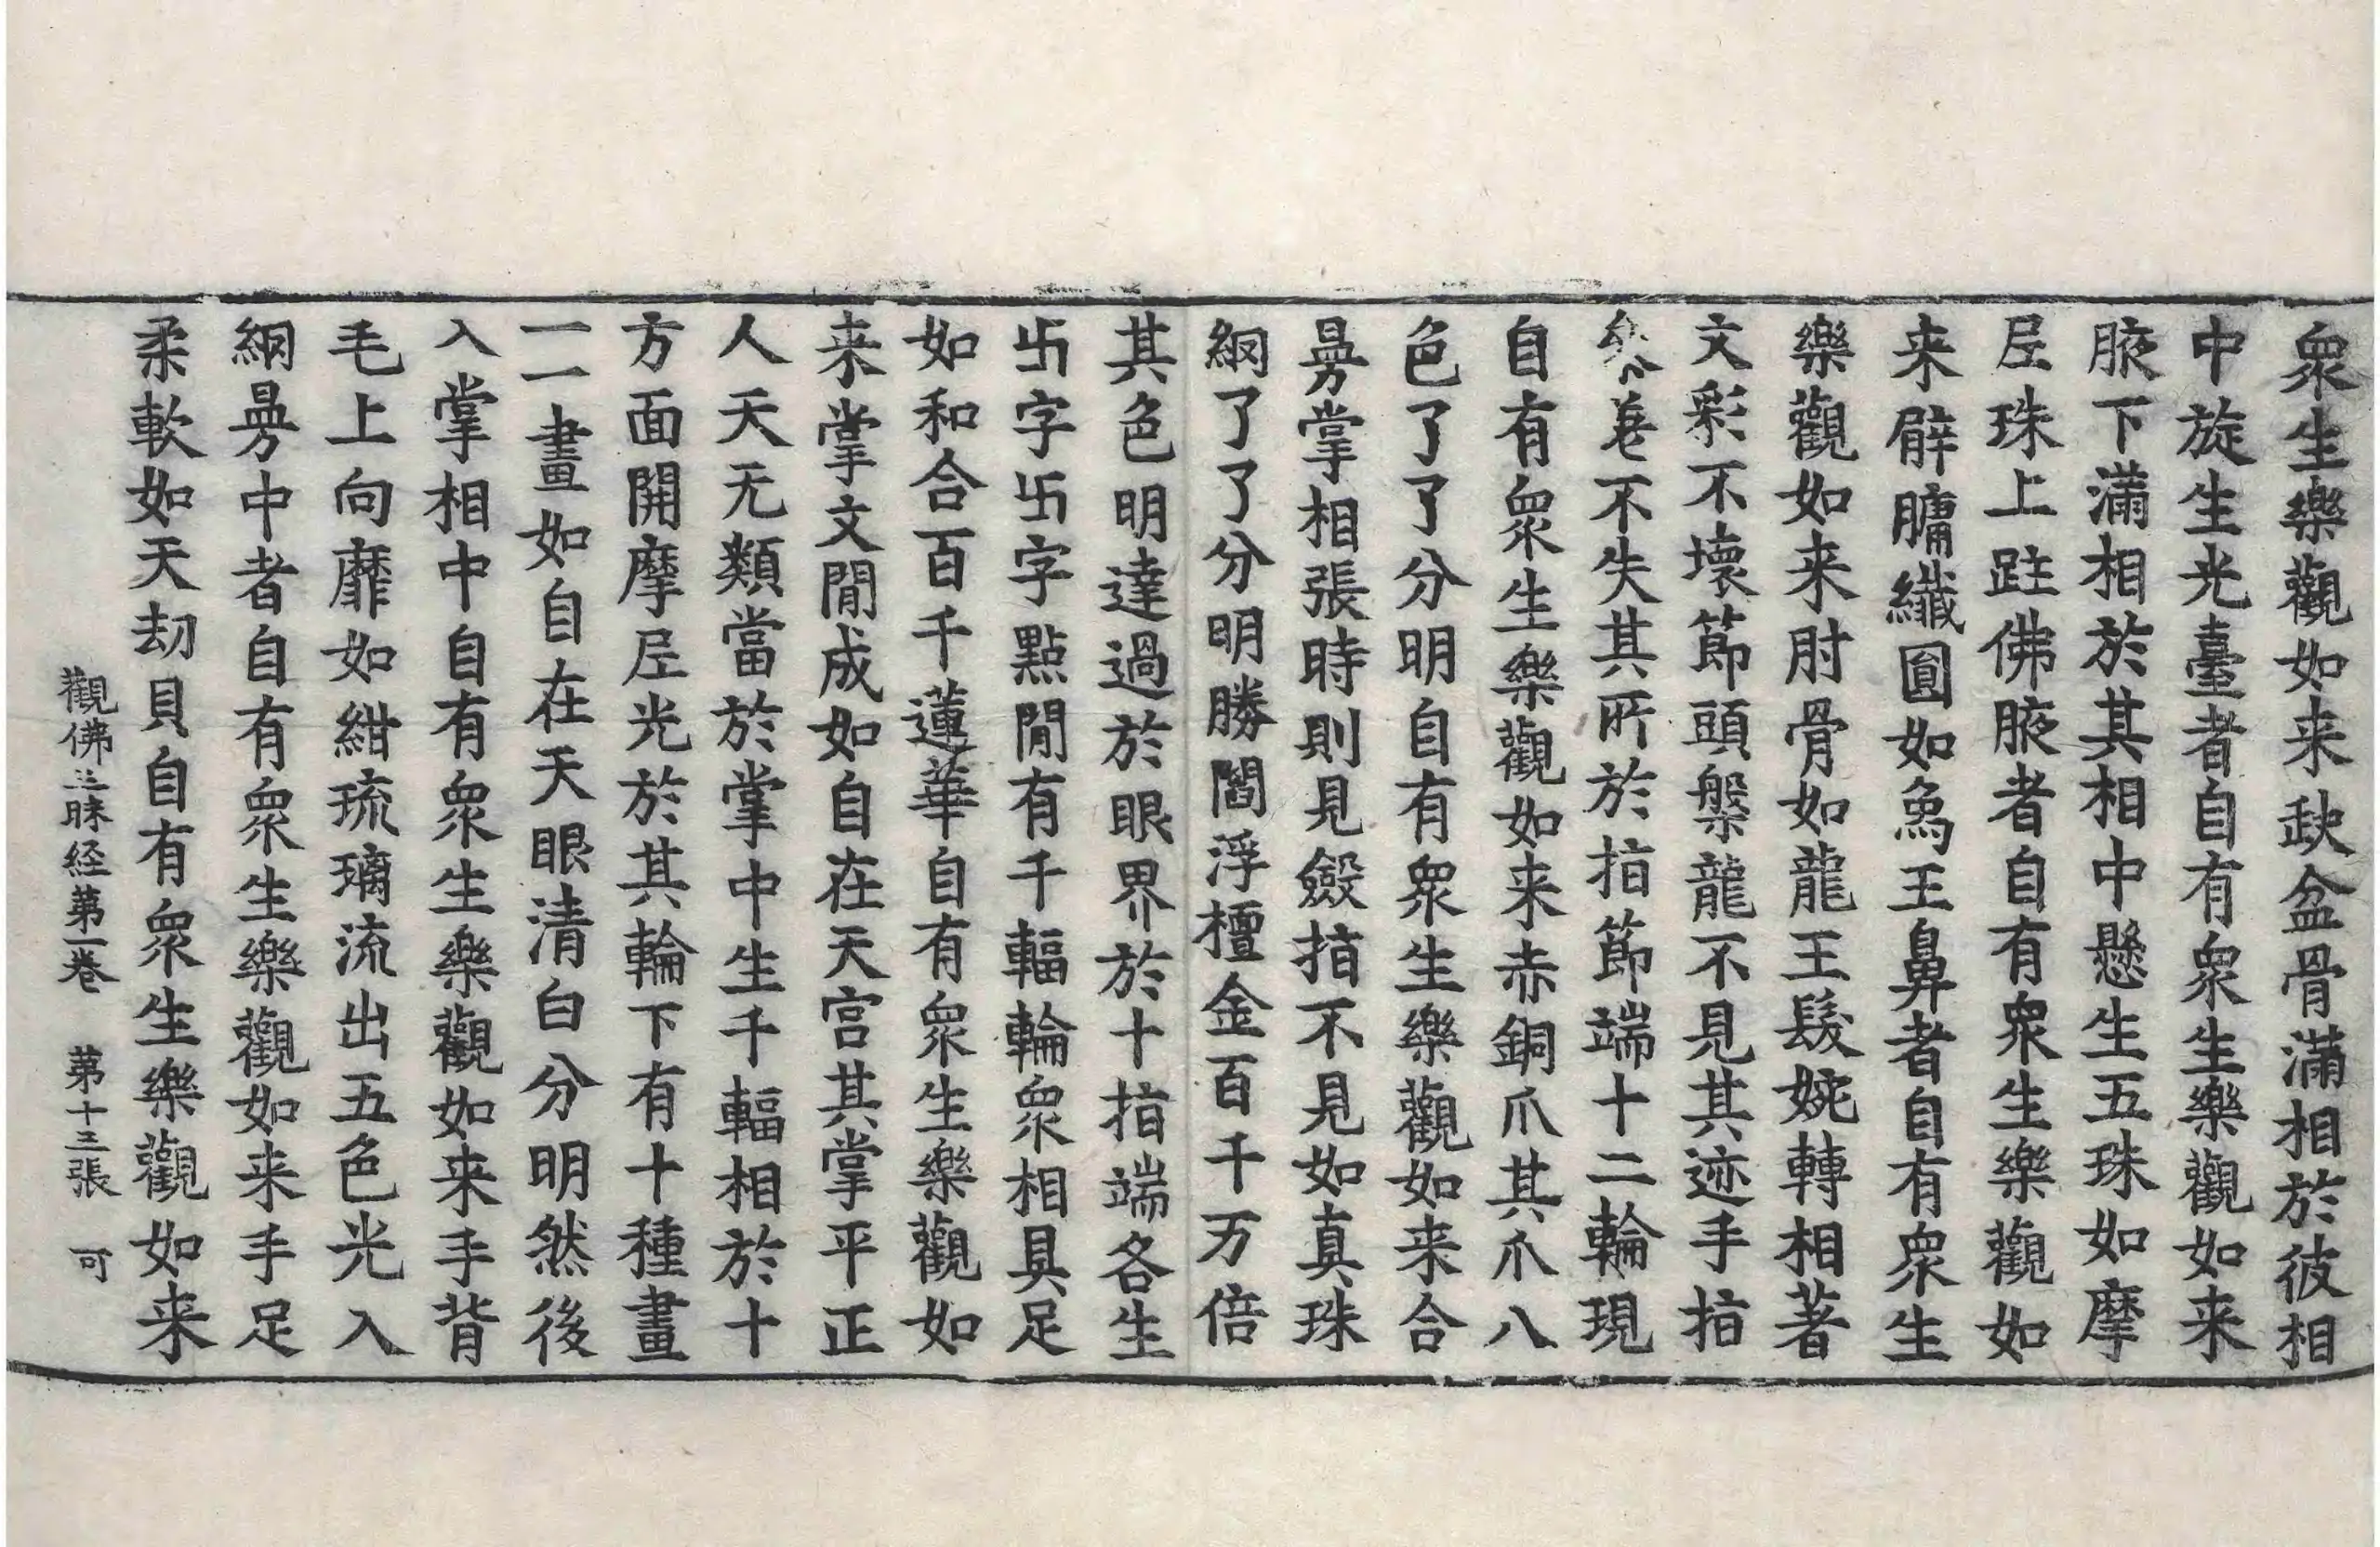 衆生樂觀如来缺盆骨滿相於彼相
中旋生光臺者自有衆生樂觀如来
腋下滿相於其相中懸生五珠如摩
𡰱珠上跓佛腋者自有衆生樂觀如
来臂𦟛纖圎如𤉯王鼻者自有衆生
樂觀如来肘骨如龍王髮婉轉相著
文彩不壞節頭槃龍不見其迹手指
叅差不失其所於指節端十二輪現
自有衆生樂觀如来赤銅爪其爪八
色了了分明自有衆生樂觀如来合
曼掌相張時則見斂指不見如真珠
網了了分明勝閻浮檀金百千万倍
其色明達過於眼界於十指端各生
卐字卐字點間有千輻輪衆相具足
如和合百千蓮華自有衆生樂觀如
来掌文間成如自在天宫其掌平正
人天无類當於掌中生千輻相於十
方面開摩𡰱光於其輪下有十種畫
一一畫如自在天眼清白分明然後
入掌相中自有衆生樂觀如来手背
毛上向靡如紺琉璃流出五色光入
網曼中者自有衆生樂觀如来手足
柔軟如天劫貝自有衆生樂觀如来
觀佛三昧经第一卷　第十三張　可